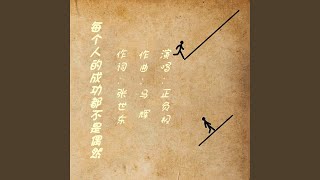 每个人的成功都不是偶然
作词：张世东
作曲：马辉
演唱：正负极